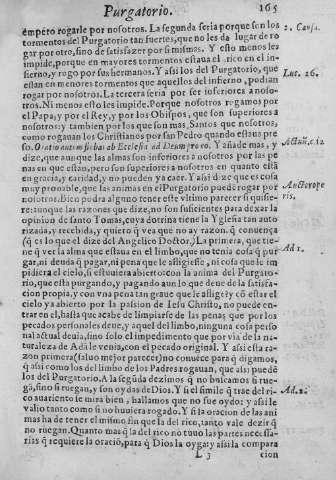 Purgatorio. 165
empero rogarle por nosotros. La segunda seria porque son los
tormentos del Purgatorio tan fuertes, que no les da lugar de ro
gar por otro, sino de satisfazer por si mismos. Y esto menos les
impide, porque en mayores tormentos estaua el rico en el in-
fierno, y rogo por sus hermanos. Y assi los del Purgatorio, que
estan en menores tormentos que aquellos del infierno, podian
rogar por nosotros. La tercera seria por ser inferiores a noso-
tros. Ni menos esto les impide. Porque nosotros rogamos por
el Papa, y por el Rey, y por los Obispos, que son superiores a
nosotros: y tambien por los que son mas Santos que nosotros,
como rogauan los Christianos por san Pedro quando estaua pre
so. Oratio autem fiebat ab Ecclesia ad Deum pro eo. Y añade mas, y
dize, que aunque las almas son inferiores a nosotros por las pe
nas en que estan, pero son superiores a nosotros en quanto está
en gracia, y caridad, y no pueden ya caer. Y assi dize que es cosa
muy prouable, que las animas en el Purgatorio puedē rogar por
nosotros. Bien podra alguno tener este vltimo parecer si quisie-
re: aunque las razones que dize, no son suficientes para dexar la
opinion de santo Tomas, cuya dotrina tiene la Yglesia tan auto
rizada, y recebida, y quiero q̄ vea que no ay razon. q̄ conuença
(q̄ es lo que el dize del Angelico Doctor.) La primera, que tie-
ne q̄ ver la alma que estaua en el limbo, que no tenia cosa q̄ pur
gar, ni deuda q̄ pagar, ni pena que le afligiesse, ni cosa que le im
pidiera el cielo, si estuuiera abierto: con la anima del Purgato-
rio, que está purgando, y pagando aun lo que deue de la satisfa-
cion propia, y con vna pena tan graue que le aflige: y cō estar el
cielo ya abierto por la passion de Iesu Christo, no puede en-
trar en el, hasta que acabe de limpiarse de las penas que por los
pecados personales deue, y aquel del limbo, ninguna cosa perso
nal actual deuia, sino solo el impedimento que por via de la na-
turaleza de Adā le venia, con el pecado original. Y assi esta ra-
zon primera (saluo mejor parecer) no conuēce para q̄ digamos,
q̄ assi como los del limbo de los Padres rogauan, que assi puedē
los del Purgatorio. A la segūda dezimos q̄ no buscamos si rue-
gā, sino si ruegan, y son oydas de Dios. Y si el simile q̄ trae del ri-
co auariento le mira bien, hallamos que no fue oydo: y assi le
valio tanto como si no huuiera rogado. Y si la oracion de las ani
mas ha de tener el mismo fin que la del rico, tanto vale dezir q̄
no ruegan. Quanto mas q̄ la del rico no tuuo las partes necessa-
rias q̄ requiere la oraciō, para q̄ Dios la oyga: y assi la compara
L 3 cion
2. Causa.
Luc. 16.
Actuū. c. 12
Autoris.
Ad 1.
Ad. 2.